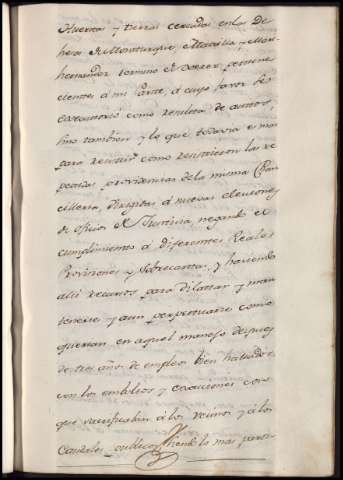 Huertas y tierras cercadas en las De
hesas de Monturque, Matilla, y Mar
hernandez termino de Xerez pertene
cientes á mi parte, á cuyo favor se
executorió como resulta de autos,
sino tambien y lo que todavia es mas
para resistir como resistieron las re
petidas providencias de la misma Chan
cilleria, dirigidas á nuevas elecciones
de oficios de Justicia, negando el
cumplimiento á diferentes Reales
Provisiones y Sobrecartas, y haciendo
alli recursos para dilatar y man
tenerse y aun perpetuarse como
querian en aquel manejo despues
de tres años de empleos bien hallados
con los emolios y exacciones con
que sacrificaban á los vecinos y á los
Caudales publicos siendo lo mas peros